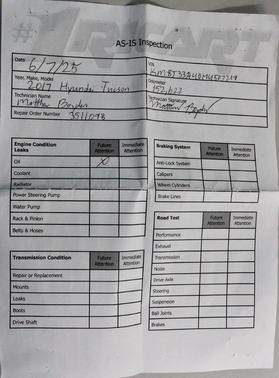 AS-IS Inspection
Date 6/7/25
VIN
Year, Make, Model 2017 Hyundai Tucson
Odometer 152,627
Technician Name Matthew Boyden
Technician Signature
Repair Order Number 3511098
Engine Condition Leaks Future Attention Immediate Attention
Oil X
Coolant
Radiator
Power Steering Pump
Water Pump
Rack & Pinion
Belts & Hoses
Braking System Future Attention Immediate Attention
Anti-Lock System
Calipers
Wheel Cylinders
Brake Lines
Road Test Future Attention Immediate Attention
Performance
Exhaust
Transmission
Noise
Drive Axle
Steering
Suspension
Ball Joints
Brakes
Transmission Condition Future Attention Immediate Attention
Repair or Replacement
Mounts
Leaks
Boots
Drive Shaft